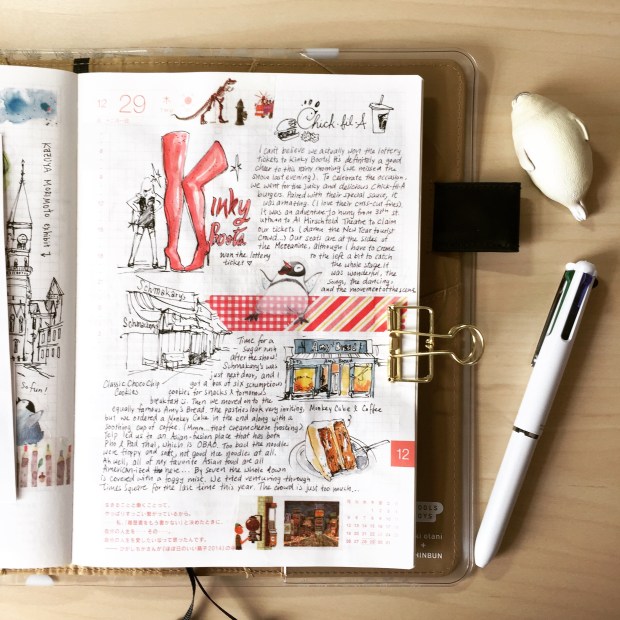 KAZUYA MORIMOTO exhibit
So fun!
12
29
Chick-fil-A
I can't believe we actually won the lottery
tickets to Kinky Boots! It's definitely a good
cheer to this rainy morning (we missed the
show last evening). To celebrate the occasion,
we went for the juicy and delicious Chick-fil-A
burger. Paired with their special sauce, it
was amazing. (I love their criss-cut fries)
It was an adventure to hurry from 37th st.
uptown to Al Hirschfeld Theatre to claim
our tickets (damn the New Year tourist
crowd...) Our seats are at the sides of
the Mezzanine, although I have to crane
to the left a bit to catch
the whole stage it
was wonderful, the
songs, the dancing,
and the movement of the scene.
Kinky
Boots
won the lottery
ticket
Schmakary's
Schmakary's
Time for a
sugar rush
after the show!
Schmakary's was
just next door, and I
got a box of six scrumptious
cookies for snacks & tomorrow's
breakfast. Then we moved on to the
equally famous Amy's Bread. The pastries look very inviting,
but we ordered a Monkey Cake in the end along with a
soothing cup of coffee. (Mmm.. that cream cheese frosting)
Yelp led us to an Asian-fusion place that has both
Pho & Pad Thai, which is OBAO. Too bad the noodle
were floppy and soft, not good rice noodles at all.
Ah well, all of my favorite Asian food are all
American-ized here... By seven the whole town
is covered with a foggy mist. We tried venturing through
Times Square for the last time this year. The crowd is just too much...
Classic Choco Chip
Cookies
Amy's Bread
Monkey Cake & Coffee
12
TOOLS
TOYS
+
SHINBUN